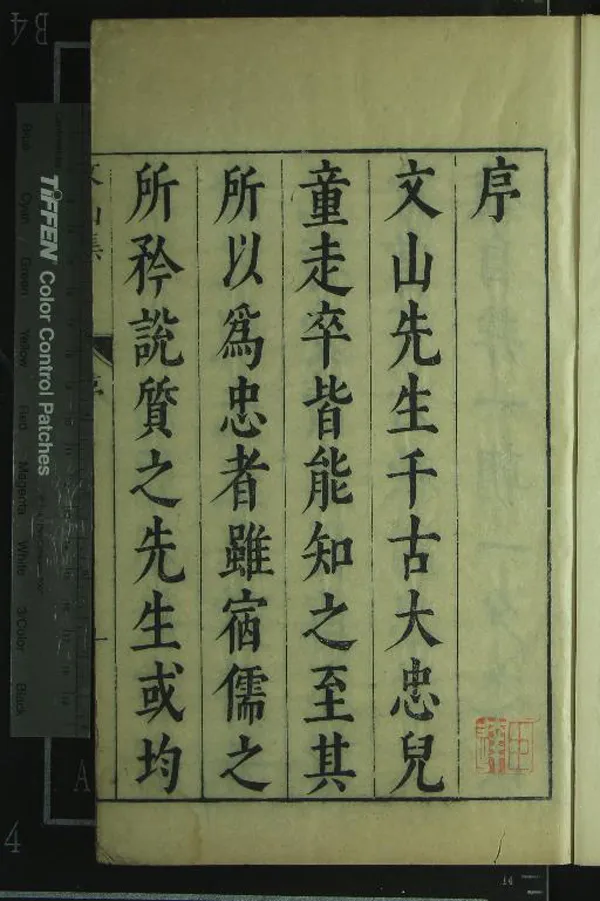 序
文山先生千古大忠兒
童走卒皆能知之至其
所以為忠者雖宿儒之
所矜說質之先生或均
TIFFEN Color Control Patches
Blue Cyan Green Yellow Red Magenta White 3/Color Black
B4
A
4
14